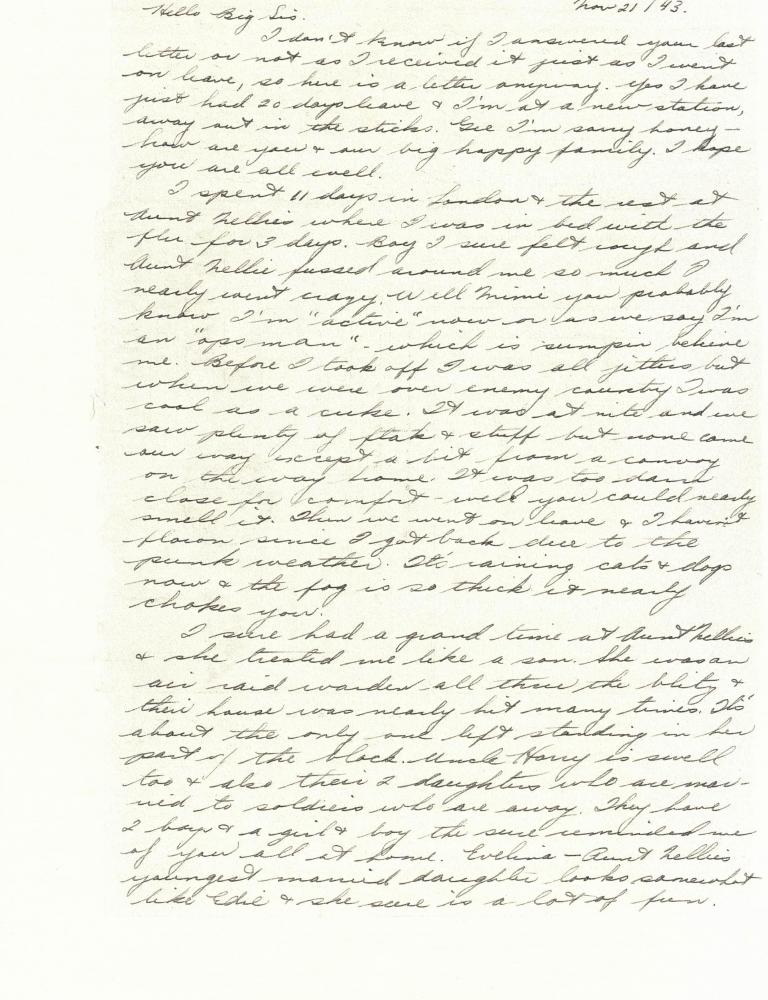 Hello Big Sis. Nov 21/43.
I don't know if I answered your last
letter or not as I received it just as I went
on leave, so here is a letter anyway. Yes I have
just had 20 days leave & I'm at a new station,
away out in the sticks. Gee I'm sorry honey –
how are you & our big happy family. I hope
you are all well.
I spent 11 days in London & the rest at
Aunt Nellies where I was in bed with the
flu for 3 days. Boy I sure felt rough and
Aunt Nellie fussed around me so much I
nearly went crazy. Well Mimi you probably
know I'm "active" now or as we say I'm
an "ops man" - which is sumpin believe
me. Before I took off I was all jitters but
when we were over enemy country I was
cool as a cuke. It was at nite and we
saw plenty of flak & stuff but none came
our way except a bit from a convoy
on the way home. It was too darn
close for comfort - well you could nearly
smell it. Then we went on leave & I haven't
flown since I got back due to the
punk weather. It's raining cats & dogs
now & the fog is so thick it nearly
chokes you.
I sure had a grand time at Aunt Nellies
& she treated me like a son. She was an
air raid warden all thru the blitz &
their house was nearly hit many times. It's
about the only one left standing in her
part of the block. Uncle Harry is swell
too & also their 2 daughters who are mar-
ried to soldiers who are away. They have
2 boys & a girl & boy the sure reminded me
of you all at home. Evelina - Aunt Nellies
youngest married daughter looks somewhat
like Edie & she sure is a lot of fun.